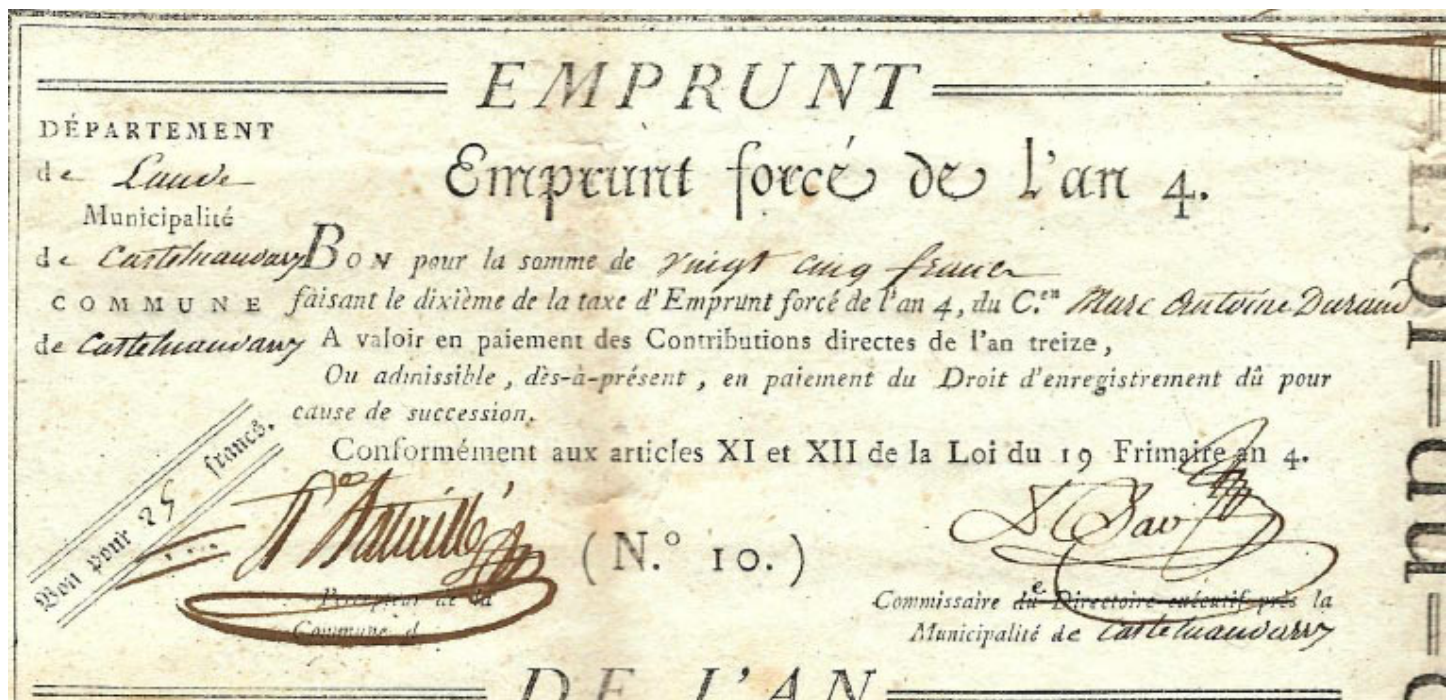 EMPRUNT
DÉPARTEMENT
de Laude
Municipalité
de Castelnaudary
COMMUNE
de Castelnaudary
Emprunt forcé de l'an 4.
BON pour la somme de vingt cinq francs
faisant le dixième de la taxe d'Emprunt forcé de l'an 4, du C.en Marc Antoine Durand
A valoir en paiement des Contributions directes de l'an treize,
Ou admissible, dès-à-présent, en paiement du Droit d'enregistrement dû pour
cause de succession.
Conformément aux articles XI et XII de la Loi du 19 Frimaire an 4.
Bon pour 25 francs.
(N.° 10.)
Percepteur de la
Commune d
Commissaire du Directoire exécutif près la
Municipalité de Castelnaudary
DE L'AN